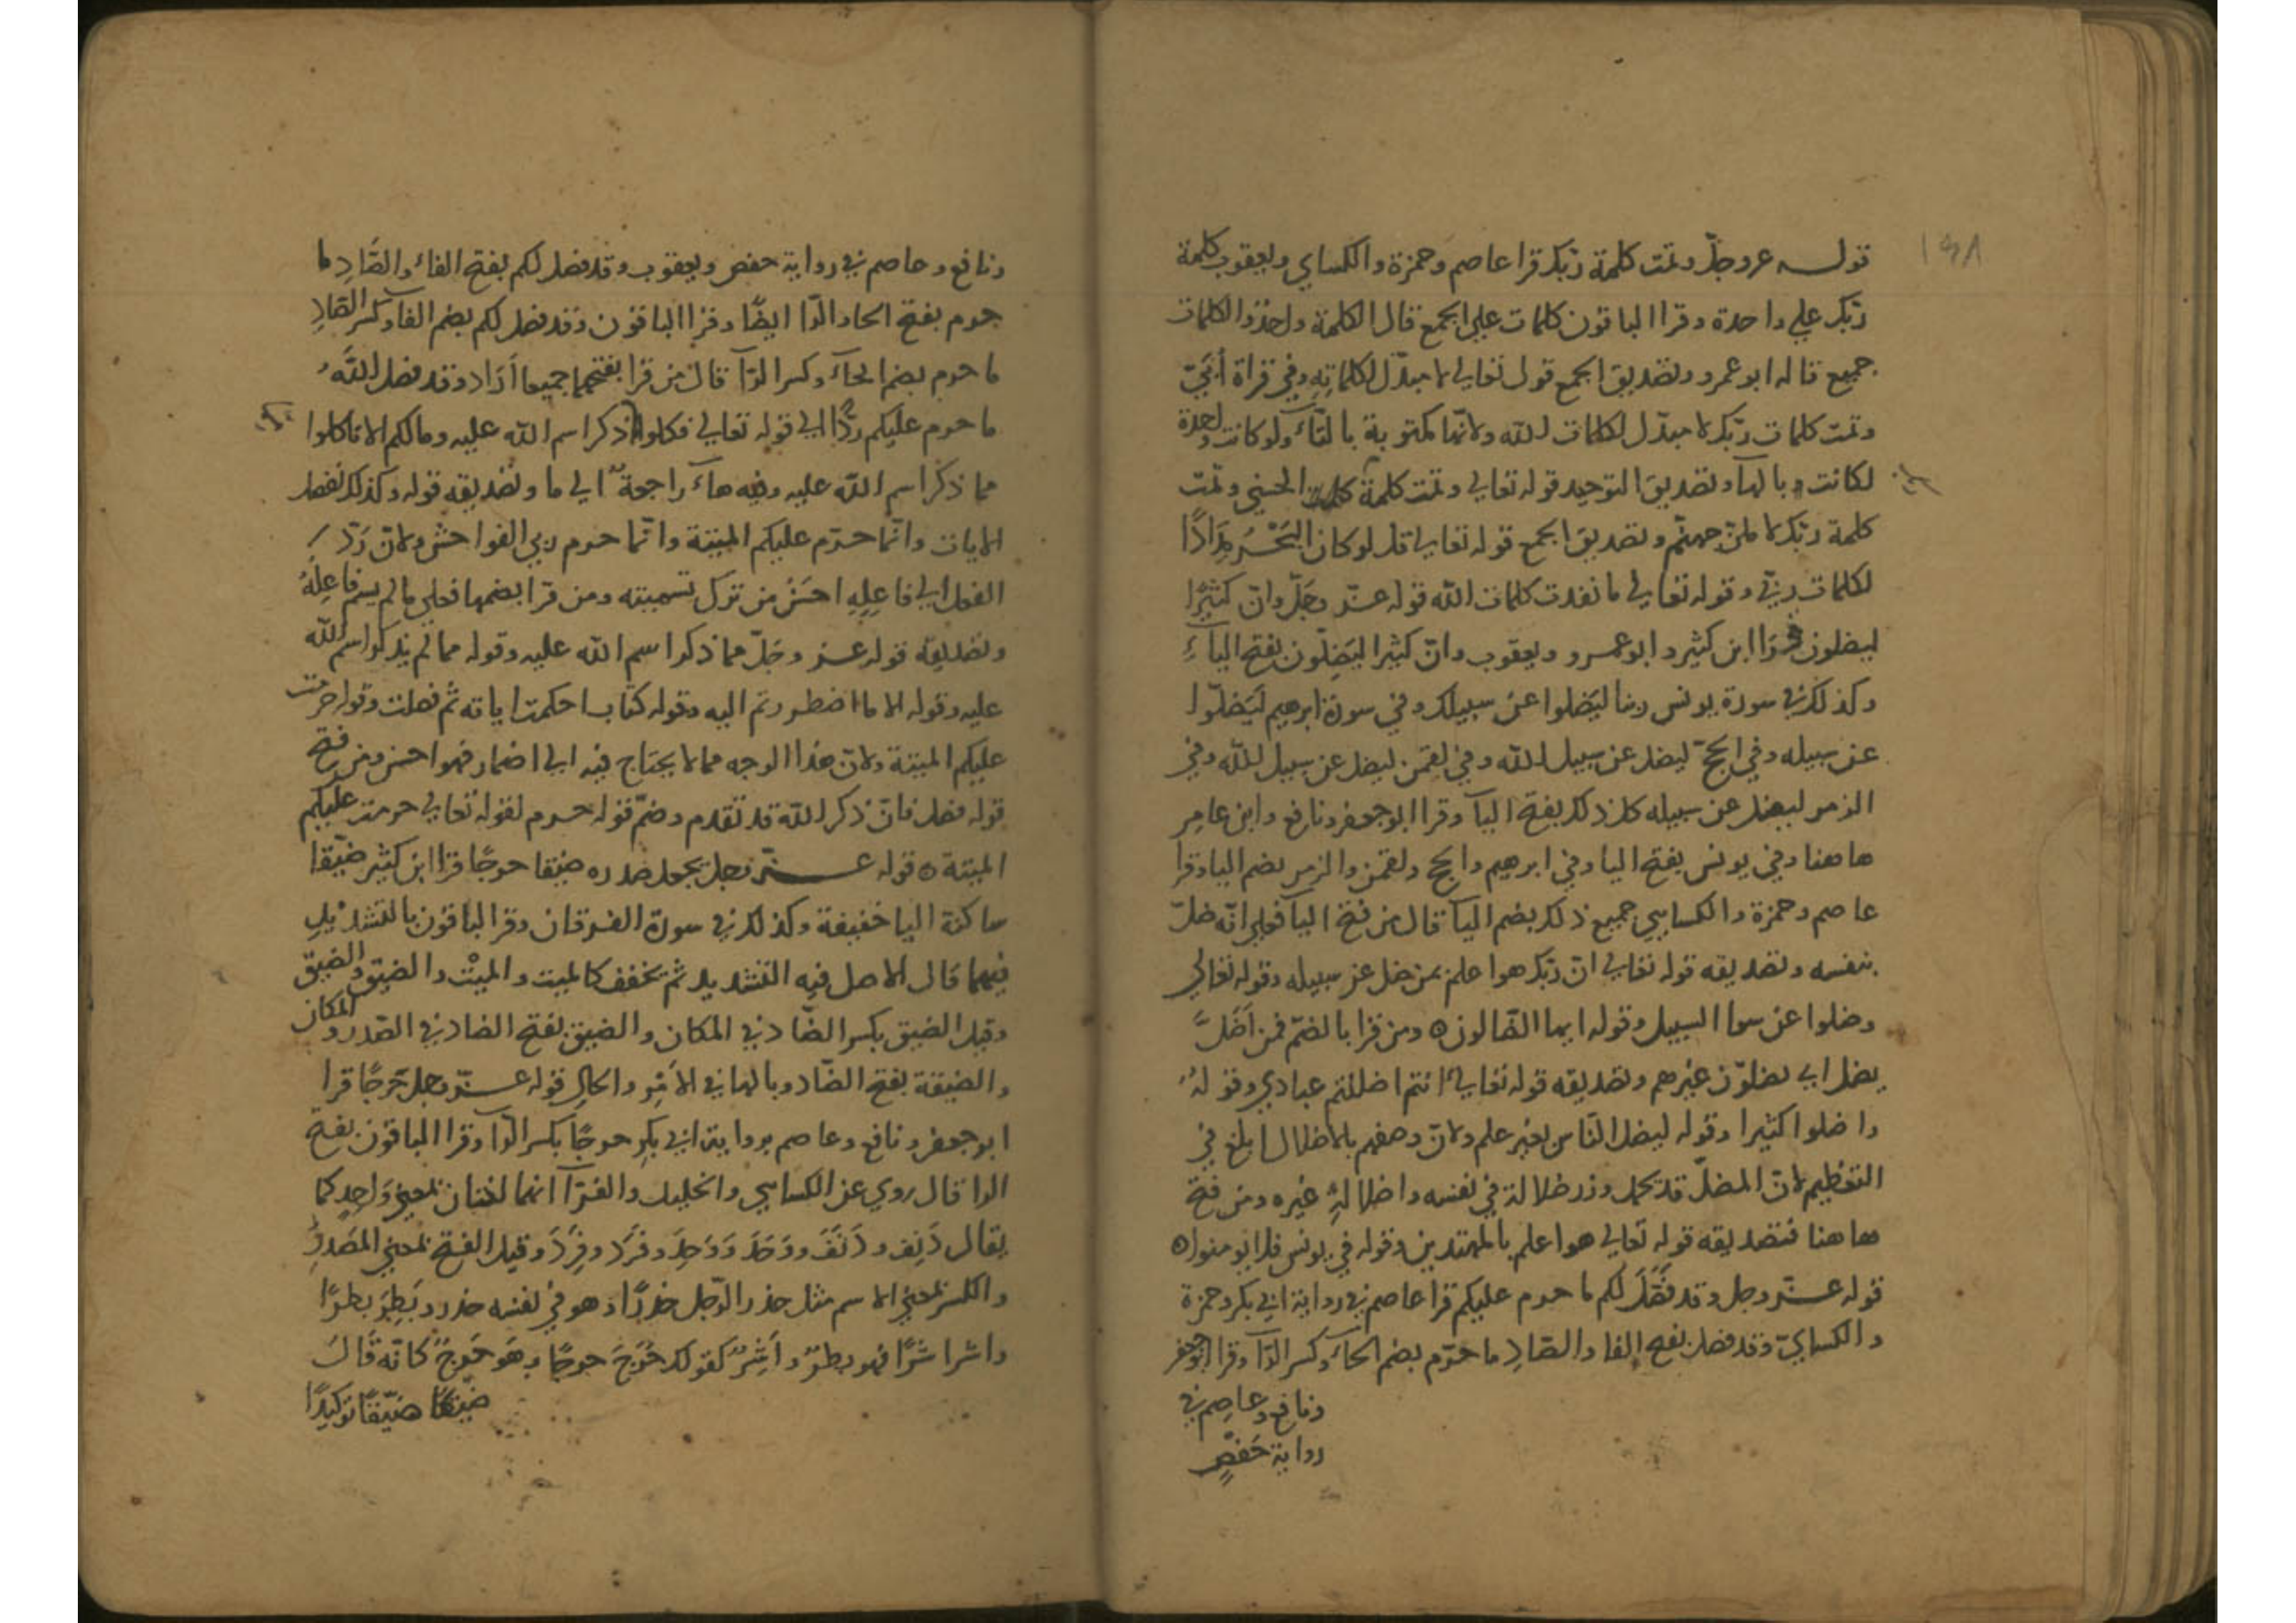 قوله عز وجلّ وتمت كلمة ربّك قرا عاصم وحمزة والكساي ويعقوب كلمة
ربّك علي واحدة وقرا الباقون كلمات علي الجمع قال الكلمة واحدة والكلمات
جميع قاله ابو عمرو وتصديق الجمع قوله تعالي لا مبدّل لكلماتِهِ وفي قراة أُبَيّ
وتمت كلمات ربّك لا مبدّل لكلمات الله ولانّها مكتوبة بالتّآء ولو كانت واحدة
لكانت بالهآء وتصديق التوحيد قوله تعالي وتمت كلمة الحسني وتمّت
كلمة ربّك لاملئنّ جهنّم وتصديق الجمع قوله تعالي قل لو كان البَحْرُ مِدَادًا
لكلمات ربّي وقوله تعالي ما نفدت كلمات الله قوله عزّ وجَلّ وانّ كثيرًا
ليضلون قرَا ابن كثير وابو عمرو ويعقوب وانّ كثيرا ليَضِلّون بفتح اليآءِ
وكذلك في سورة يونس ربنا ليَضلوا عن سبيلك وفي سورة ابرهيم ليَضلّوا
عن سبيله وفي الحجّ ليضل عن سبيل الله وفي لقمن ليضل عن سبيل الله وفي
الزمر ليضل عن سبيله كل ذلك بفتح اليآ وقرا ابو جعفر ونافع وابن عامر
هاهنا وفي يونس بفتح اليا وفي ابرهيم والحج ولقمن والزمر بضم اليا وقرا
عاصم وحمزة والكسايي جميع ذلك بضم اليآ قال من فتح اليآ فعلي انّه ضلّ
بنفسه وتصديقه قوله تعالي انّ ربّك هو اعلم بمن ضل عن سبيله وقوله تعالي
وضلوا عن سوا السبيل وقوله ايها الضّالون ٥ ومن قرا بالضمّ فمن أضَلَّ
يضل اي يضلوّن غيرهم وتصديقه قوله تعالي اانتم اضللتم عبادي وقولهُ
واضلوا كثيرا وقوله ليضل النّاس بغير علم ولانّ وصفهم بالاضلال ابلغ في
التعظيم لانّ المضلّ قد يحمل وزر ضلالة في نفسه واضلالهِ غيره ومن فتح
هاهنا فتصديقه قوله تعالي هو اعلم بالمهتدين وقوله في يونس فلا يومنوا ٥
قوله عزّ وجل وقد فَصَّلَ لكم ما حرم عليكم قرا عاصم في رواية ابي بكر وحمزة
والكسايّ وقد فصل بفتح الفا والصّادِ ما حرّم بضم الحآء وكسر الرّآ وقرا ابو جعفر
ونافع وعاصم في
رواية حَفصٍ
ونافع وعاصم في رواية حفص ويعقوب وقد فصل لكم بفتح الفاء والصَّادِ ما
حرم بفتح الحا والرّا ايضًا وقرا الباقون وقد فصل لكم بضم الفا وكسر الصّادِ
ما حرم بضم الحآء وكسر الرّا قال من قرا بفتحهما جميعا اَرَاد وقد فصل اللّهُ
ما حرم عليكم ردًّا الي قوله تعالي فكلوا ذكر اسم الله عليه وما لكم الا تاكلوا
مما ذكر اسم الله عليه وفيه هآء راجعة الي ما وتصديقه قوله وكذلك نفصل
الايات وانّما حرّم عليكم الميتة وانّما حرم ربي الفواحش ولانّ رَدّ
الفعل الي فاعِلِهِ احسَنُ من ترك تسميته ومن قرا بضمها فعلي ما لم يسم فاعِلُهُ
وتصديقه قوله عز وجَلّ مما ذكر اسم الله عليه وقوله مما لم يذكر اسم الله
عليه وقوله الا ما اضطررتم اليه وقوله كتاب احكمت اياته ثم فصلت وقوله حرمت
عليكم الميتة ولانّ هذا الوجه مما لا يحتاج فيه الي اضمار فهو احسن ومن فتح
قوله فصل فانّ ذكر الله قد تقدم وضمّ قوله حرم لقوله تعالي حرمت عليكم
الميتة ٥ قوله عزّ وجل يجعل صدره ضيقا حرجًا قرا ابن كثير ضيّقا
ساكنة اليا خفيفة وكذلك في سورة الفرقان وقرا الباقون بالتشديدِ
فيهما قال الاصل فيه التشديد ثم تخفف كالميت والميْت والضيّق والضيق
وقيل الضيق بكسر الضّاد في المكان والضيق بفتح الضاد في الصّدر والمكان
والضيقة بفتح الضّاد وبالها في الأمر والحالِ قوله عزّ وجل حَرجًا قرا
ابو جعفر ونافع وعاصم برواية ابي بكرٍ حرجًا بكسر الرّا وقرا الباقون بفتح
الرا قال روي عن الكسايي والخليل والفرّآ انهما لغتان بمعني وَاحِدٍ كما
يقال دَنِف ودَنَفَ ووَحَدَ وَوَحِدَ وفَرَد وفَرِدَ وقيل الفتح بمعني المصَدرِ
والكسر بمعني الاسم مثل حذر الرّجل حذرًا وهو في نفسه حذر وبَطِرَ بطرًا
واشر اشرًا فهو بطرٌ واَشِرٌ كقولك حَرِجَ حرجًا وهَو حَرِجٌ كانّه قَالَ
ضيّقًا ضيّقًا توكيدًا